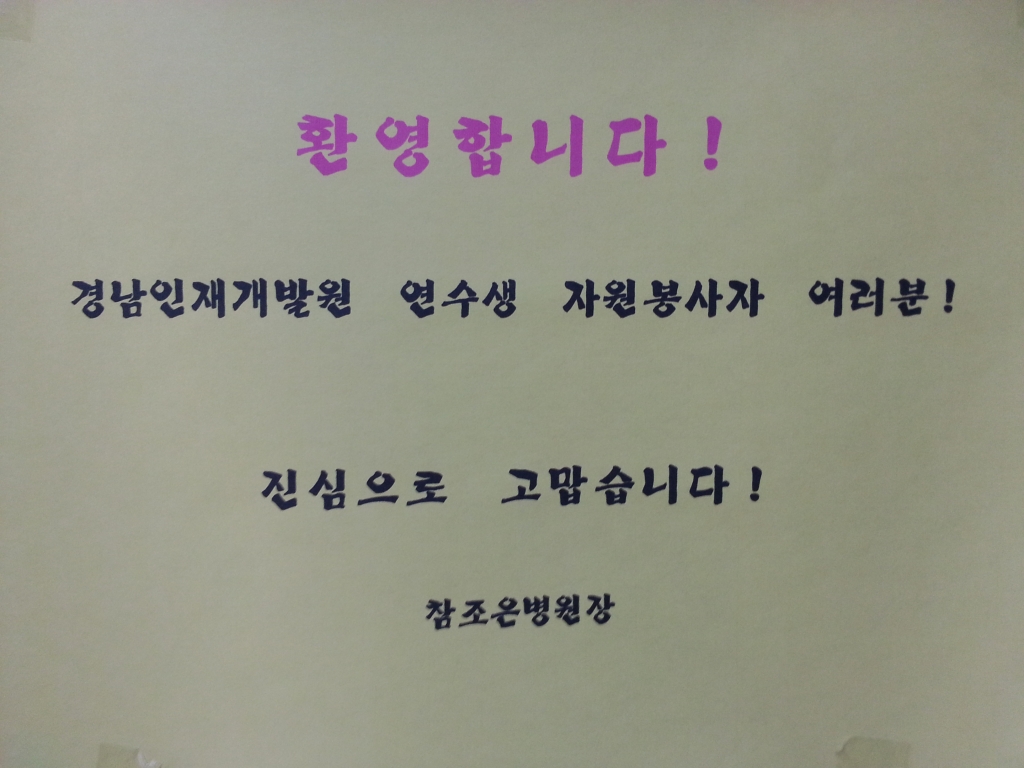 환영합니다!
경남인재개발원 연수생 자원봉사자 여러분!
진심으로 고맙습니다!
참조은병원장